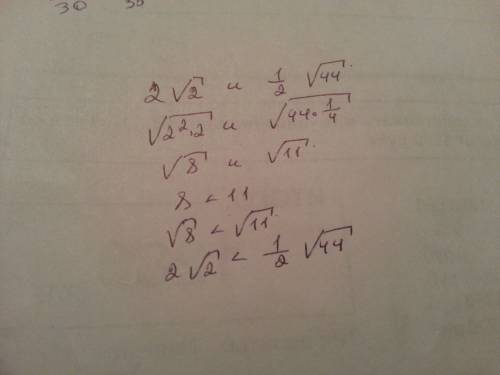 30 35
2 √2 и 1/2 √44
√2²·2 и √44·1/4
√8 и √11
8 < 11
√8 < √11
2 √2 < 1/2 √44